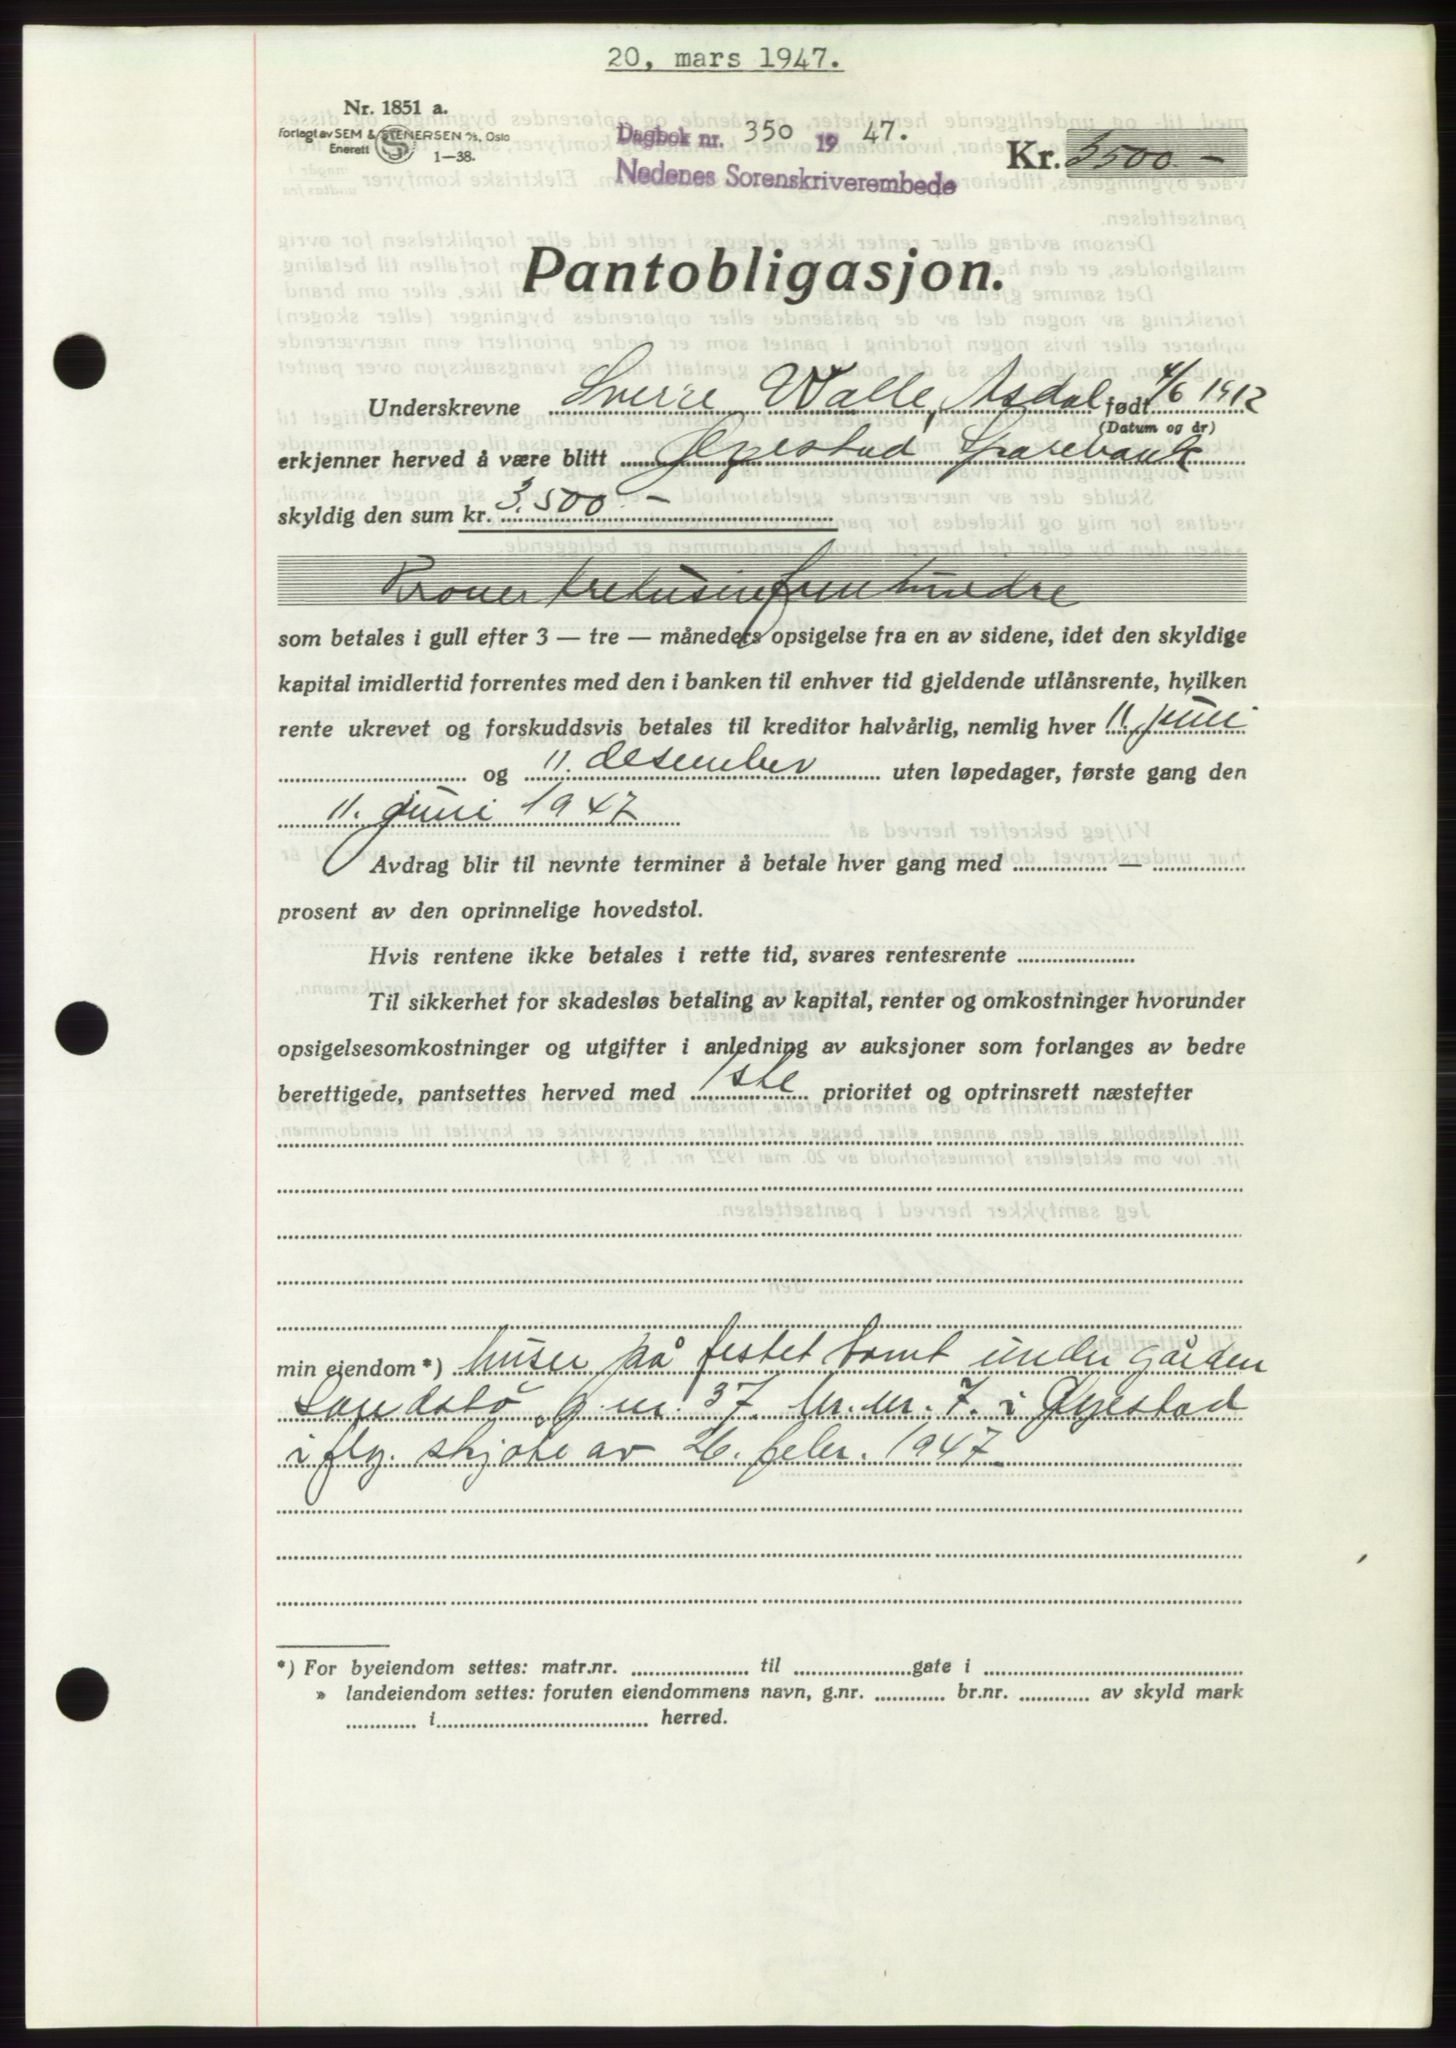 20, mars 1947.
Nr. 1851 a.
Forlagt av SEM & STENERSEN A/S, Oslo
Enerett 1-38.
Dagbok nr. 350 1947.
Nedenes Sorenskriverembede
Kr. 3500.-
Pantobligasjon.
Underskrevne Sverre Walle, Asdal født 4/6 1912
(Datum og år)
erkjenner herved å være blitt Øyestad Sparebank
skyldig den sum kr. 3.500.-
Kroner tretusinfemhundre
som betales i gull efter 3 — tre — måneders opsigelse fra en av sidene, idet den skyldige
kapital imidlertid forrentes med den i banken til enhver tid gjeldende utlånsrente, hvilken
rente ukrevet og forskuddsvis betales til kreditor halvårlig, nemlig hver 11. juni
og 11. desember uten løpedager, første gang den
11. juni 1947
Avdrag blir til nevnte terminer å betale hver gang med —
prosent av den oprinnelige hovedstol.
Hvis rentene ikke betales i rette tid, svares rentesrente
Til sikkerhet for skadesløs betaling av kapital, renter og omkostninger hvorunder
opsigelsesomkostninger og utgifter i anledning av auksjoner som forlanges av bedre
berettigede, pantsettes herved med 1ste prioritet og optrinsrett næstefter
min eiendom *) huser på festet tomt under gården
Sandstø g.nr. 37. br.nr. 7. i Øyestad
iflg. skjøte av 26. febr. 1947.
*) For byeiendom settes: matr.nr. til gate i
» landeiendom settes: foruten eiendommens navn, g.nr. br.nr. av skyld mark
i herred.